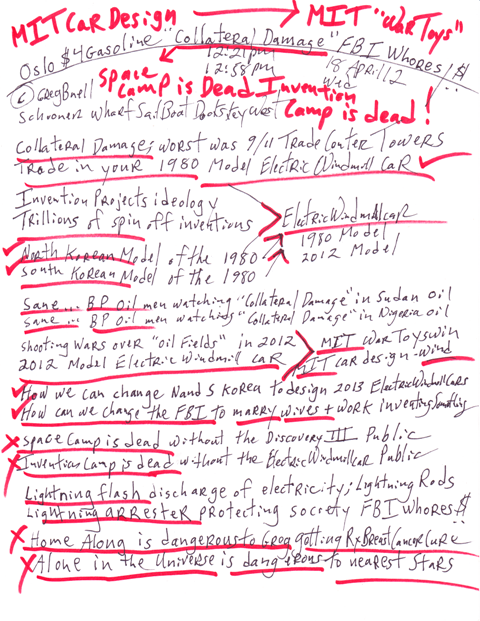 MIT Car Design → MIT "War Toys"
Oslo $4 Gasoline "Collateral Damage" FBI Whores/$
12:21pm
12:58pm
18 April 12
Wed
Space Camp is Dead Invention Camp is dead!
© Greg Buell
Schooner Wharf Sail Boat Docks Key West
Collateral Damage; worst was 9/11 Trade Center Towers
Trade in your 1980 Model Electric Windmill Car
Invention Projects ideology
Trillions of spin off inventions
ElectricWindmillcar
1980 Model
2012 Model
North Korean Model of the 1980
South Korean Model of the 1980
Sane... BP Oil men watching "Collateral Damage" in Sudan Oil
Sane... BP Oil men watching "Collateral Damage" in Nigeria Oil
Shooting Wars over "Oil Fields" in 2012
2012 Model Electric Windmill Car
MIT War Toys win
MIT Car design - Wind
How we can change N and S Korea to design 2013 ElectricWindmillCars
How can we change the FBI to marry wives + work inventing Something
Space Camp is dead without the Discovery III Public
Invention Camp is dead without the ElectricWindmillCar Public
Lightning flash discharge of electricity; Lightning Rods
Lightning arrester protecting society FBI Whores $
Home Along is dangerous to Greg gotting Rx Breast Cancer Cure
Alone in the Universe is dangerous to nearest Stars